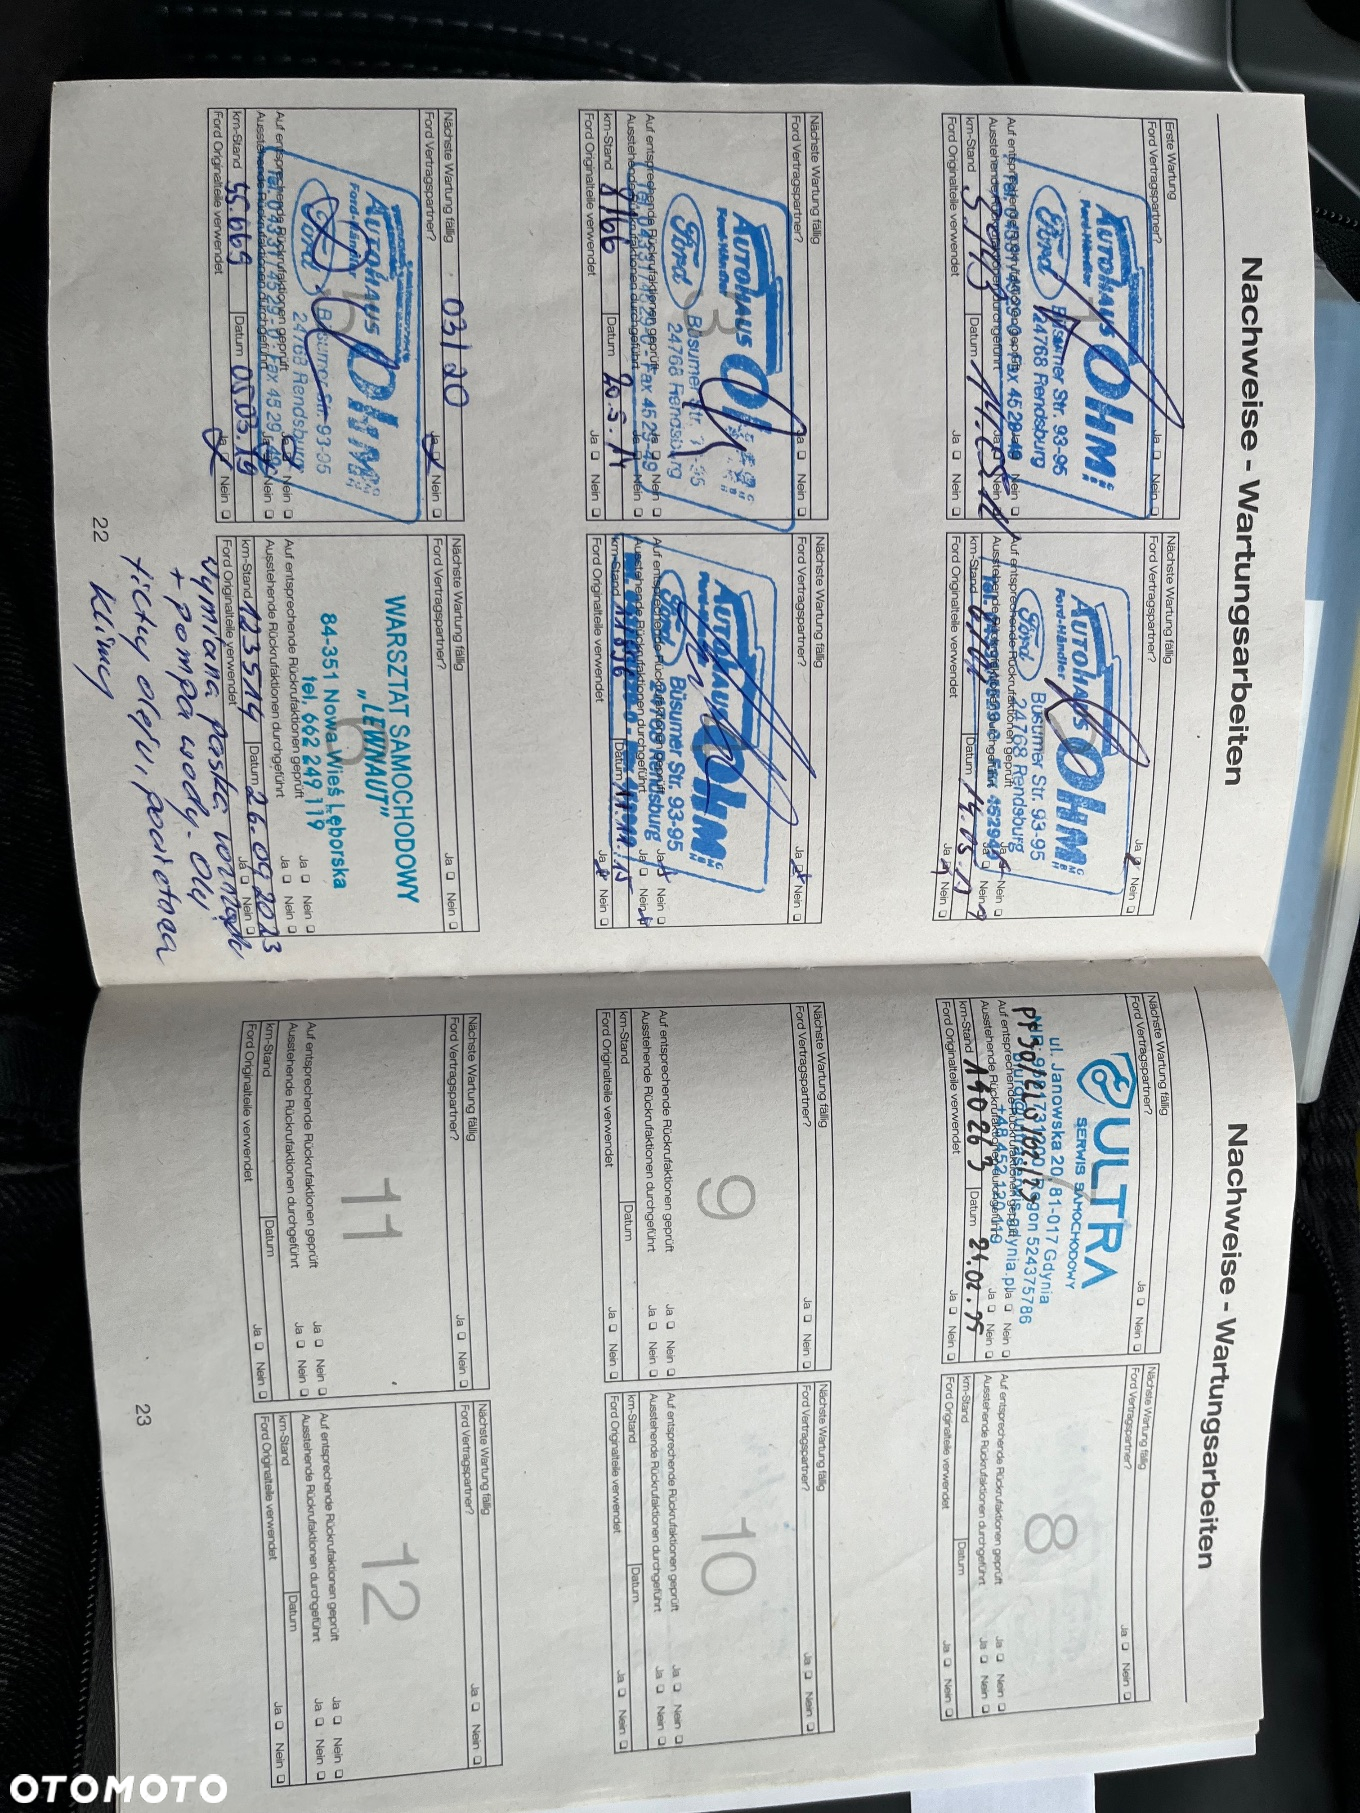 Nachweise - Wartungsarbeiten
Erste Wartung
Ford Vertragspartner?
Ja Nein
AUTOHAUS OHM
Ford-Händler
Ford
Büsumer Str. 93-95
24768 Rendsburg
Auf entsprechende Rückrufaktionen geprüft
Ausstehende Rückrufaktionen durchgeführt
km-Stand
Datum
Ford Originalteile verwendet
Ja Nein
Nächste Wartung fällig
Ford Vertragspartner?
Ja Nein
AUTOHAUS OHM
Ford-Händler
Ford
Büsumer Str. 93-95
24768 Rendsburg
Auf entsprechende Rückrufaktionen geprüft
Ausstehende Rückrufaktionen durchgeführt
km-Stand
Datum 14.03.17
Ford Originalteile verwendet
Ja Nein
Nächste Wartung fällig
Ford Vertragspartner?
Ja Nein
3
AUTOHAUS
Ford-Händler
Ford
Büsumer Str.
24768 Rendsburg
Auf entsprechende Rückrufaktionen geprüft
Ja Nein
Ausstehende Rückrufaktionen durchgeführt
Ja Nein
km-Stand 8166 Datum 20.5.14
Ford Originalteile verwendet
Ja Nein
Nächste Wartung fällig
Ford Vertragspartner?
Ja Nein
AUTOHAUS OHM
Ford
Büsumer Str. 93-95
24768 Rendsburg
Auf entsprechende Rückrufaktionen geprüft
Ja Nein
Ausstehende Rückrufaktionen durchgeführt
Ja Nein
km-Stand
Datum
Ford Originalteile verwendet
Ja Nein
Nächste Wartung fällig 03/20
Ford Vertragspartner?
Ja Nein
AUTOHAUS OHM
Ford-Händler
Ford
Büsumer Str. 93-95
24768 Rendsburg
Tel. 04331/4529-0 · Fax 4529-49
Auf entsprechende Rückrufaktionen geprüft
Ja Nein
Ausstehende Rückrufaktionen durchgeführt
Ja Nein
km-Stand 55.669 Datum 05.03.19
Ford Originalteile verwendet
Ja Nein
Nächste Wartung fällig
Ford Vertragspartner?
Ja Nein
6
WARSZTAT SAMOCHODOWY
„LEWNAUT”
84-351 Nowa Wieś Lęborska
tel. 662 249 119
Auf entsprechende Rückrufaktionen geprüft
Ja Nein
Ausstehende Rückrufaktionen durchgeführt
Ja Nein
km-Stand 123514 Datum 26.09.2023
Ford Originalteile verwendet
Ja Nein
wymiana paska rozrządu
+ pompa wody. olej
filtry oleju, powietrza
klimy
22
Nachweise - Wartungsarbeiten
Nächste Wartung fällig
Ford Vertragspartner?
Ja Nein
ULTRA
SERWIS SAMOCHODOWY
ul. Janowska 20, 81-017 Gdynia
Regon 524375786
Auf entsprechende Rückrufaktionen geprüft
Ja Nein
Ausstehende Rückrufaktionen durchgeführt
Ja Nein
km-Stand 140263 Datum 21.02.25
Ford Originalteile verwendet
Ja Nein
Nächste Wartung fällig
Ford Vertragspartner?
Ja Nein
8
Auf entsprechende Rückrufaktionen geprüft
Ja Nein
Ausstehende Rückrufaktionen durchgeführt
Ja Nein
km-Stand
Datum
Ford Originalteile verwendet
Ja Nein
Nächste Wartung fällig
Ford Vertragspartner?
Ja Nein
9
Auf entsprechende Rückrufaktionen geprüft
Ja Nein
Ausstehende Rückrufaktionen durchgeführt
Ja Nein
km-Stand
Datum
Ford Originalteile verwendet
Ja Nein
Nächste Wartung fällig
Ford Vertragspartner?
Ja Nein
10
Auf entsprechende Rückrufaktionen geprüft
Ja Nein
Ausstehende Rückrufaktionen durchgeführt
Ja Nein
km-Stand
Datum
Ford Originalteile verwendet
Ja Nein
Nächste Wartung fällig
Ford Vertragspartner?
Ja Nein
11
Auf entsprechende Rückrufaktionen geprüft
Ja Nein
Ausstehende Rückrufaktionen durchgeführt
Ja Nein
km-Stand
Datum
Ford Originalteile verwendet
Ja Nein
Nächste Wartung fällig
Ford Vertragspartner?
Ja Nein
12
Auf entsprechende Rückrufaktionen geprüft
Ja Nein
Ausstehende Rückrufaktionen durchgeführt
Ja Nein
km-Stand
Datum
Ford Originalteile verwendet
Ja Nein
23
OTOMOTO